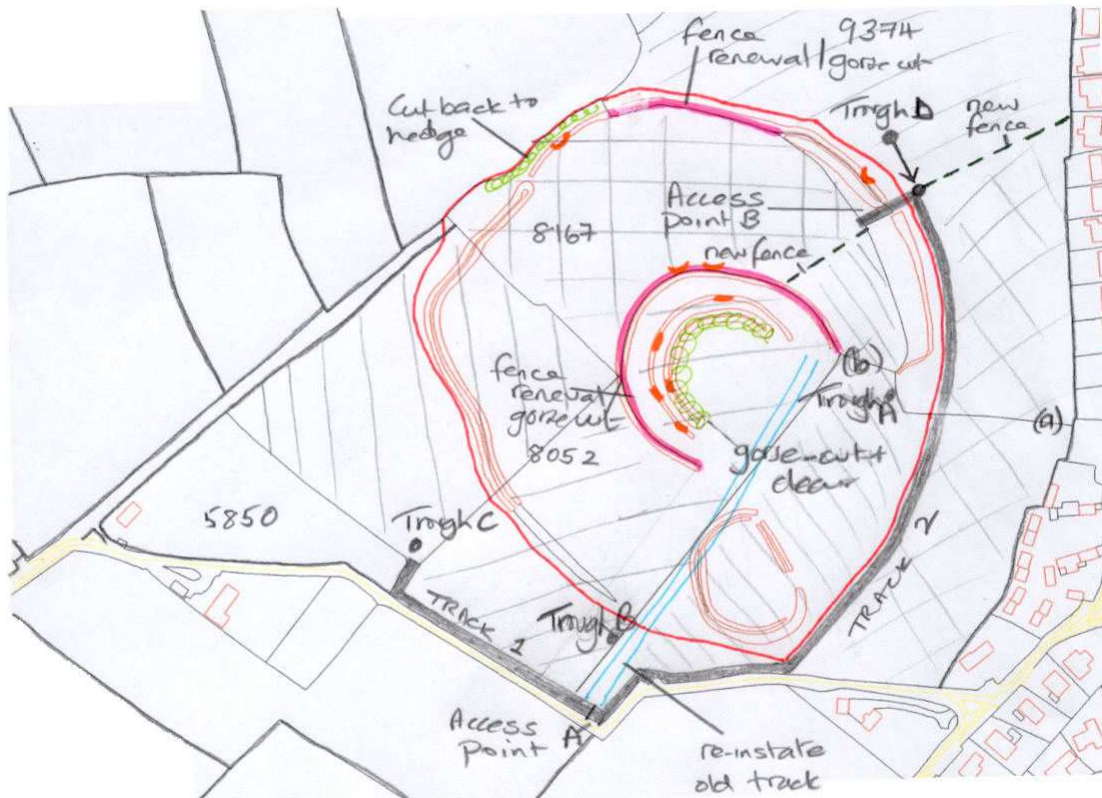 fence 9374
renewal/gorse cut
Cut back to
hedge
Trough D
new
fence
Access
point B
8167
new fence
(b)
Trough A
fence
renewal
gorse cut
8052
gorse-cut +
clear
(a)
5850
Trough C
TRACK 1
TRACK 2
Trough B
Access
point A
re-instate
old track